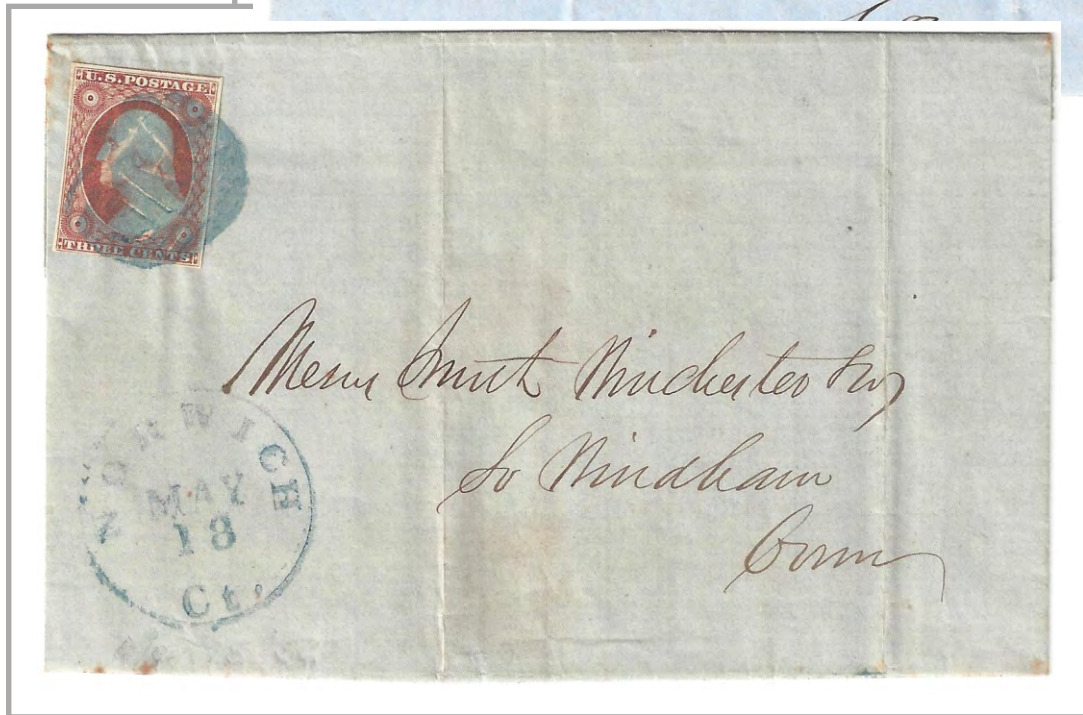 U.S. POSTAGE
THREE CENTS
Messrs Smith Winchester & Co
So Windham
Conn
NORWICH
MAY
18
Ct.